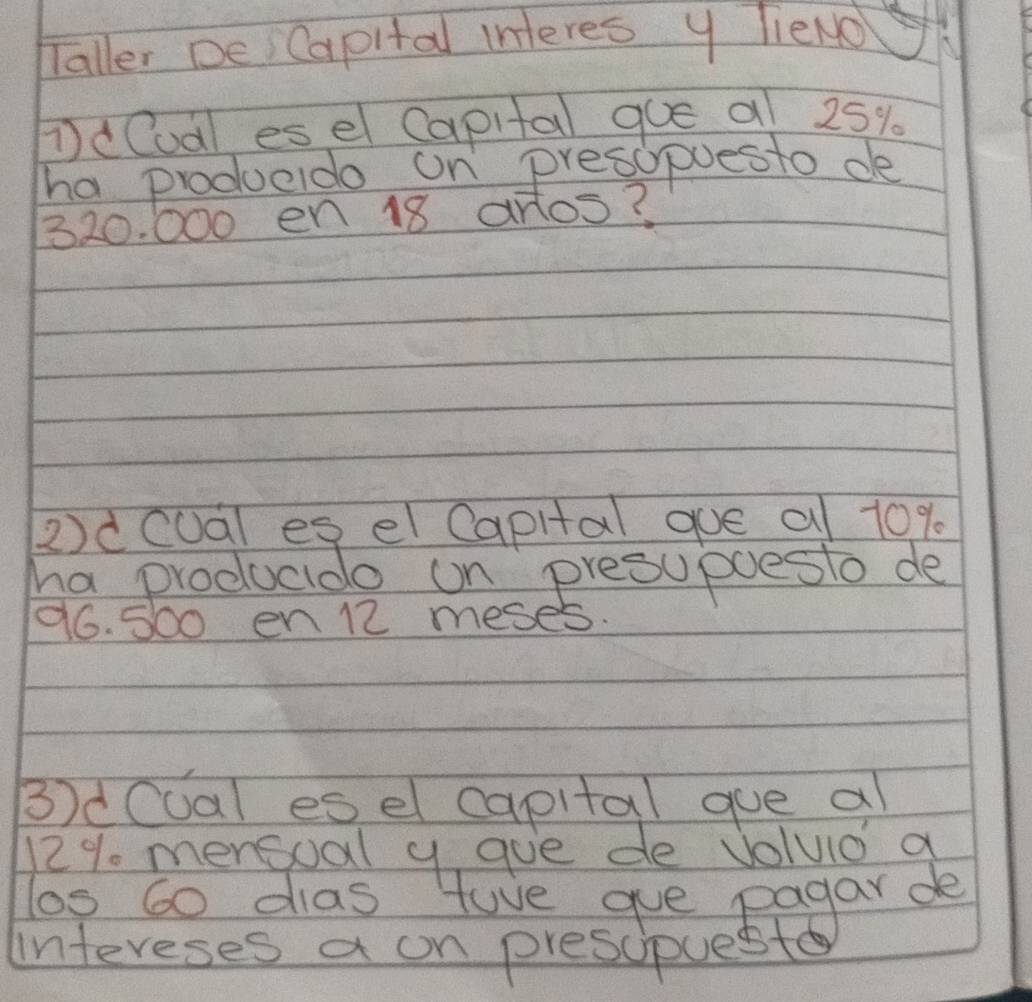 Taller De Capital interes y TieMO
1) ¿Cuál es el Capital que al 25%
ha producido un presupuesto de
320.000 en 18 años?
2) ¿Cuál es el Capital que al 10%
ha producido un presupuesto de
96.500 en 12 meses.
3) ¿Cúal es el capital que al
12% mensual y que de volvió a
los 60 dias tuve que pagar de
intereses a un presupuesto